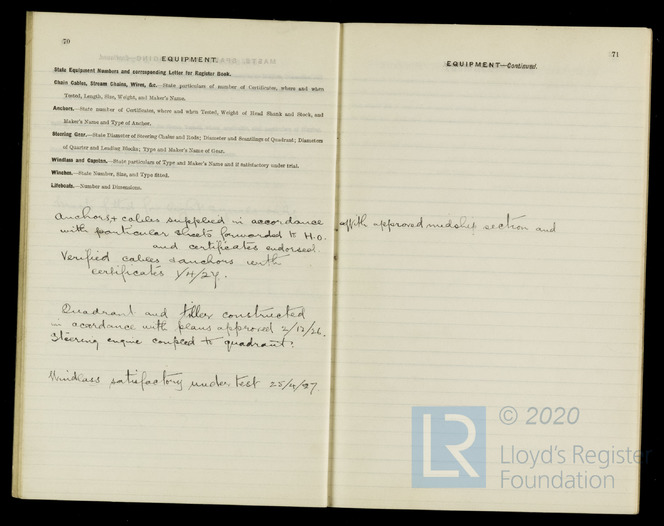 70
EQUIPMENT.
State Equipment Numbers and corresponding Letter for Register Book.
Chain Cables, Stream Chains, Wires, &c.—State particulars of number of Certificates, where and when
Tested, Length, Size, Weight, and Maker's Name.
Anchors.—State number of Certificates, where and when Tested, Weight of Head Shank and Stock, and
Maker's Name and Type of Anchor.
Steering Gear.—State Diameter of Steering Chains and Rods; Diameter and Scantlings of Quadrant; Diameters
of Quarter and Leading Blocks; Type and Maker's Name of Gear.
Windlass and Capstan.—State particulars of Type and Maker's Name and if satisfactory under trial.
Winches.—State Number, Size, and Type fitted.
Lifeboats.—Number and Dimensions.
Anchors & cables supplied in accordance
with particular sheets forwarded to H.O.
and certificates endorsed.
Verified cables & anchors with
certificates 1/4/27.
Quadrant and tiller constructed
in acordance with plans approved 2/12/26.
Steering engine coupled to quadrant.
Windlass satisfactory under test 25/4/27.
71
EQUIPMENT—Continued.
With approved midship section and
LR
© 2020
Lloyd's Register
Foundation